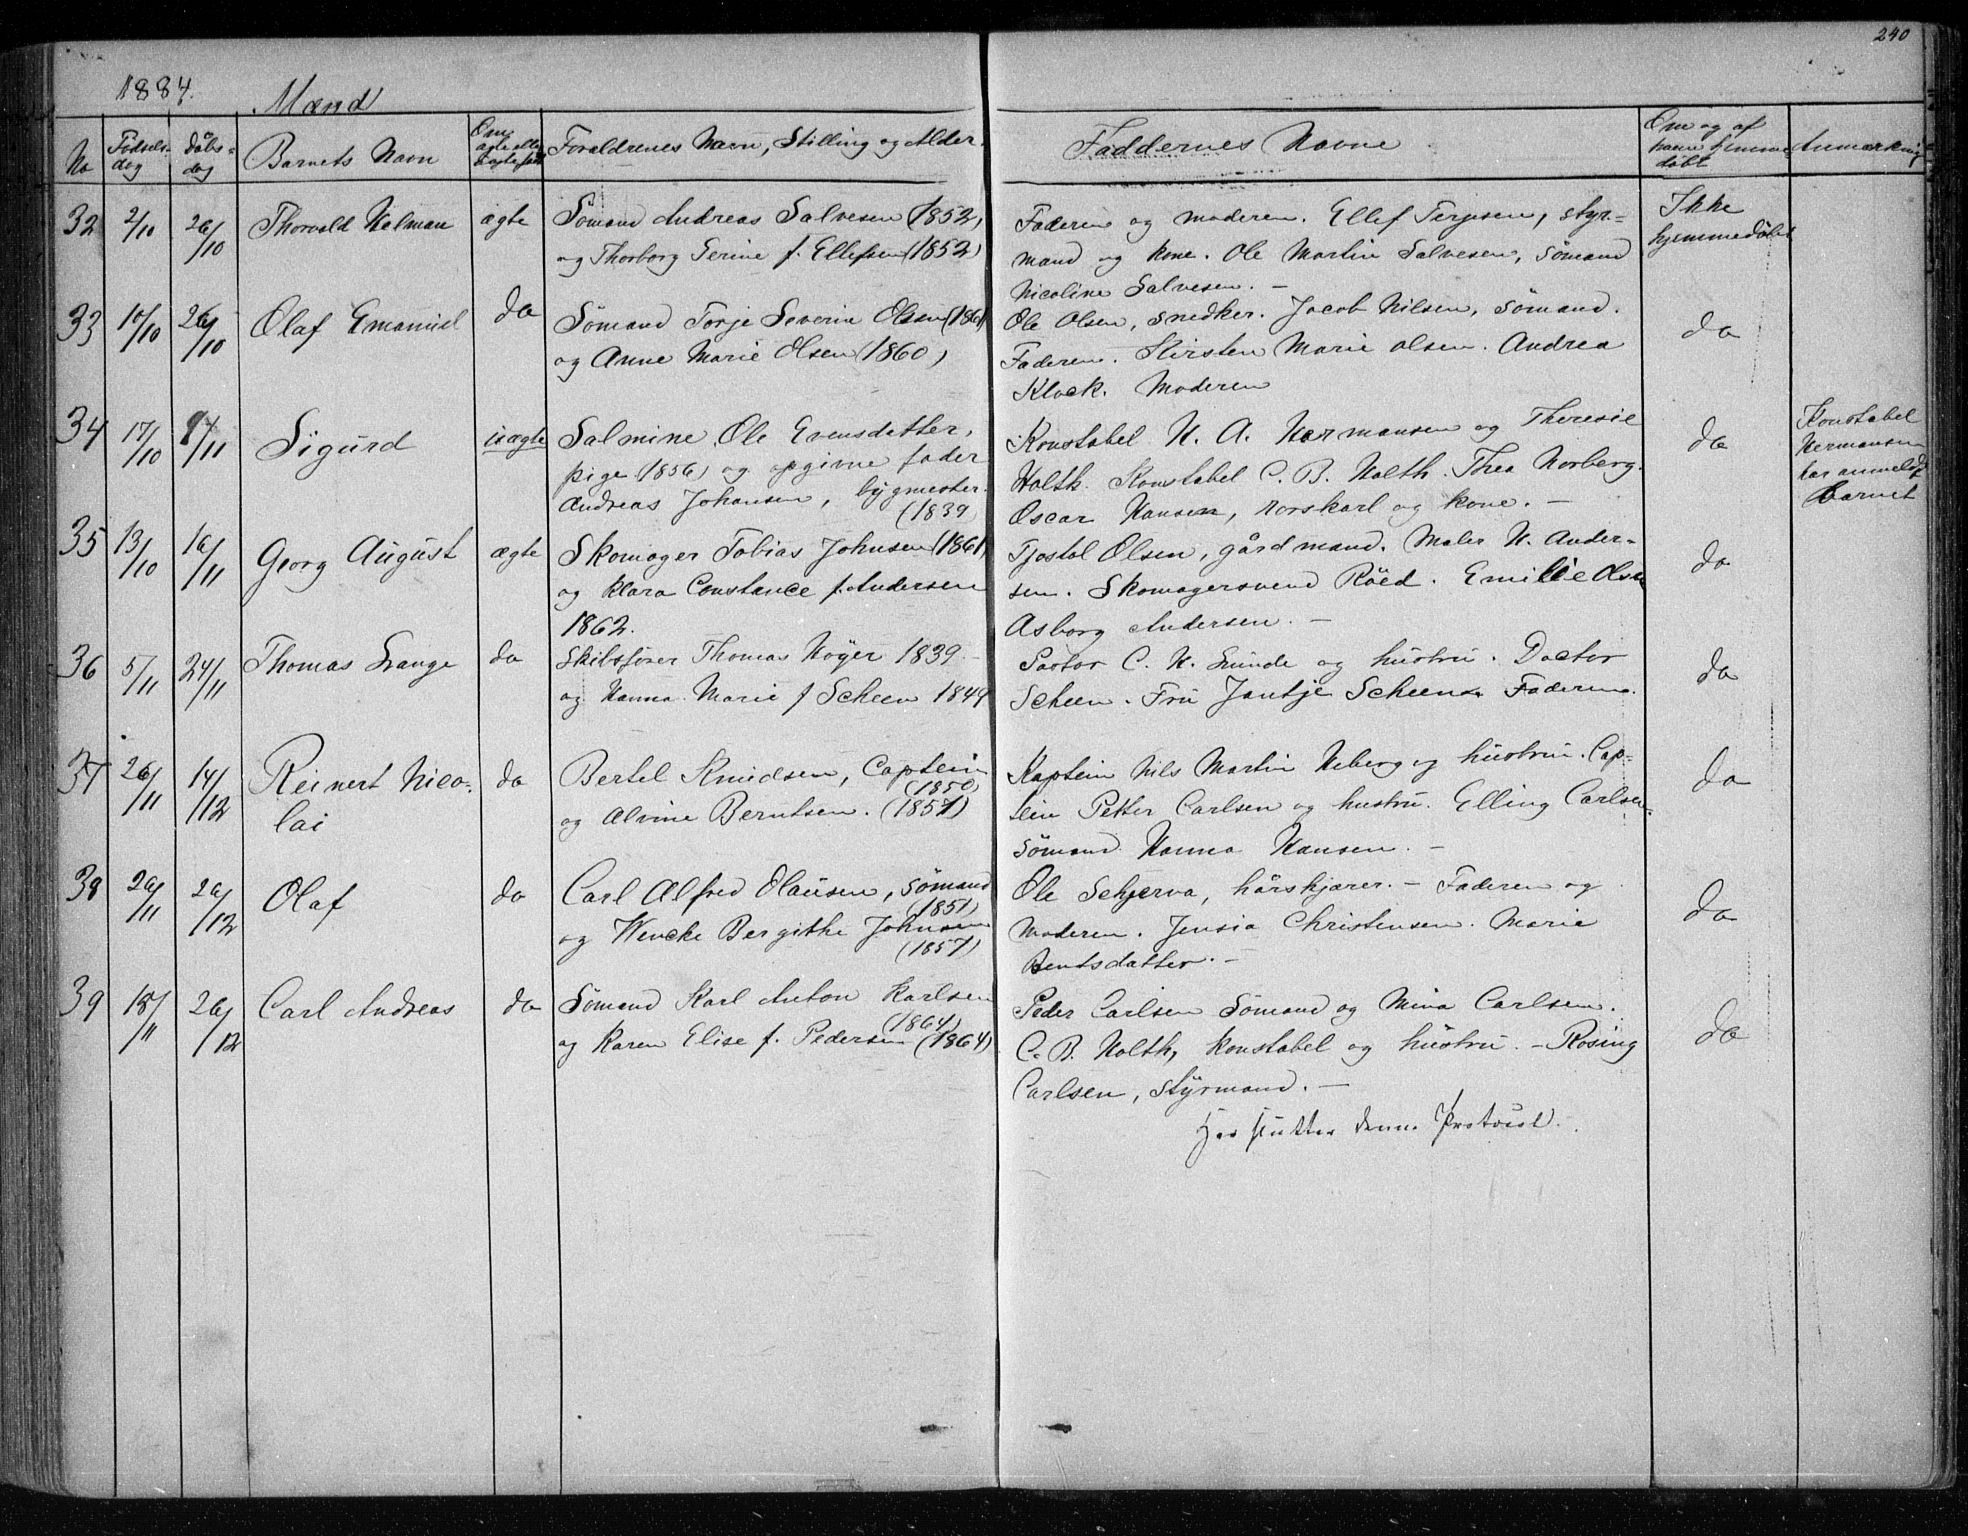 240
1884.
Mænd
No
Fødsels-
dag
Døbs-
dag
Barnets Navn
Om
ægte eller
uægte født
Forældrenes Navn, Stilling og Alder.
Faddernes Navne
Om og af
hvem hjemme-
døbt
Anmærkning
32 2/10 26/10 Thorvald Halman ægte Sømand Andreas Salvesen (1852)
og Thorborg Terine f. Ellefsen (1852)
Faderen og moderen. Ellef Terjesen, styr-
mand og kone. Ole Martin Salvesen, Sømand
Nicoline Salvesen. —
Ikke
hjemmedøbt
33 10/10 26/10 Olaf Emanuel do Sømand Torje Severin Olsen (1861
og Anne Marie Olsen (1860)
Ole Olsen, snedker. Jacob Nilsen, Sømand.
Faderen. Kirsten Marie Olsen. Andrea
Klock. Moderen
do
34 17/10 9/11 Sigurd uægte Salmine Ole Evensdatter,
pige (1856) og opgivne fader
Andreas Johansen, bygmester.
(1839
Konstabel H. A. Hermansen og Theresie
Holth. Konstabel C. B. Holth. Thea Norberg.
Oscar Hansen, rorskarl og kone. —
do
Konstabel
Hermansen
har anmeldt
Barnet
35 13/10 16/11 Georg August ægte Skomager Tobias Johnsen (1861)
og Klara Constance f. Andersen
1862.
Tjostol Olsen, gårdmand. Maler H. Ander-
sen. Skomagersvend Röed. Emilie Olsen
Asborg Andersen. —
do
36 5/11 24/11 Thomas Lange do Skibsfører Thomas Høyer 1839
og Hanna Marie f Scheen 1849
Pastor C. H. Lunde og hustru. Doctor
Scheen. Fru Jantje Scheen. Faderen.
do
37 26/11 14/12 Reinert Nico-
lai
do Bertel Knudsen, Captein
(1850)
og Alvine Berntsen. (1857)
Kaptein Nils Martin Heberg og hustru. Cap-
tein Petter Carlsen og hustru. Elling Carlsen
Sømand. Hanna Hansen. —
do
38 26/11 26/12 Olaf do Carl Alfred Olausen, sømand
(1851)
og Wencke Bergithe Johnsen
(1857)
Ole Schjerva, hårskjærer. — Faderen og
Moderen. Jensia Christensen. Marie
Bentsdatter. —
do
39 18/11 26/12 Carl Andreas do Sømand Karl Anton Karlsen
(1864)
og Karen Elise f. Pedersen (1864)
Peder Carlsen Sømand og Mina Carlsen.
C. B. Holth, konstabel og hustru. — Rosing
Carlsen, Styrmand. —
do
Her slutter denne Protocol.